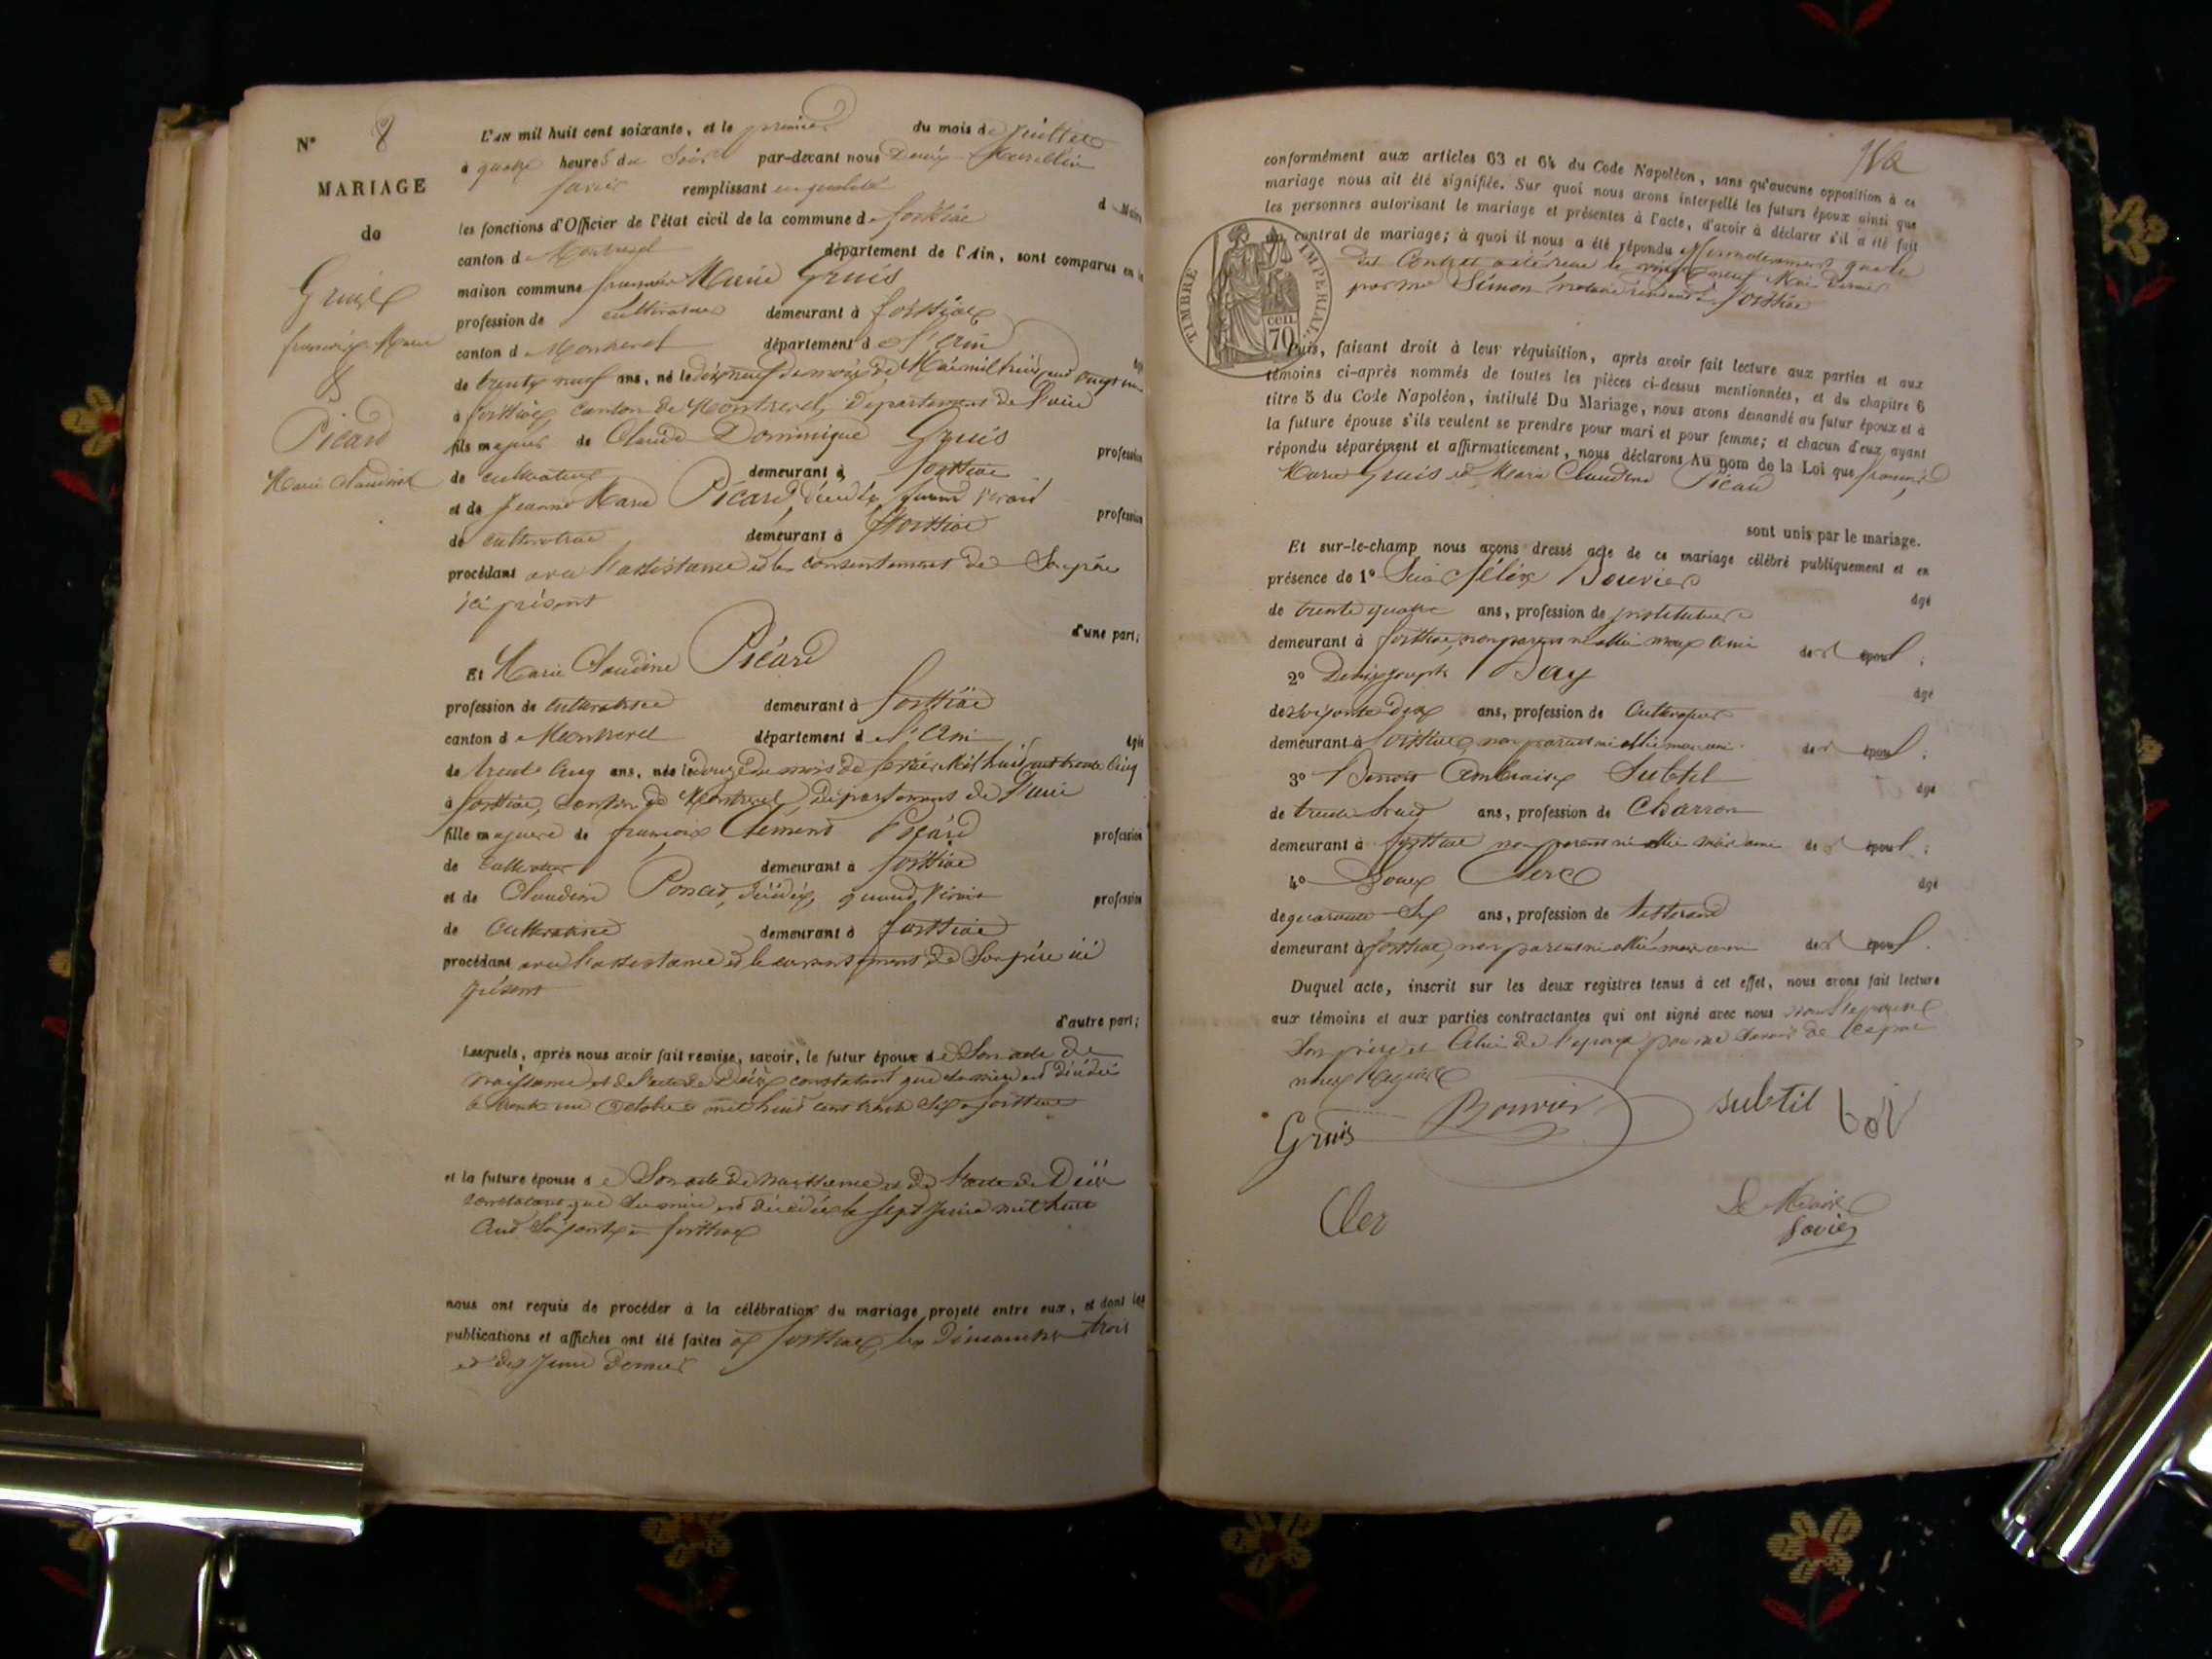 N° 8
MARIAGE
de
Gruis
françois Marie
&
Picard
Marie Claudine
L'AN mil huit cent soixante, et le premier du mois de juillet
à quatre heures du soir par-devant nous Denis Marcellin
favier remplissant en qualité d Maire
les fonctions d'Officier de l'état civil de la commune de foissiat
canton de Montrevel département de l'Ain, sont comparus en la
maison commune françois Marie Gruis
profession de cultivateur demeurant à foissiat
canton de Montrevel département de l'Ain âgé
de trente neuf ans, né le dix neuf du mois de Mai mil huit cent vingt un
à foissiat canton de Montrevel, département de l'ain
fils majeur de Claude Dominique Gruis profession
de cultivateur demeurant à foissiat
et de Jeanne Marie Picard, décédée, quand vivait profession
de cultivatrice demeurant à foissiat
procédant avec l'assistance et le consentement de Son père
ici présent
d'une part;
Et Marie Claudine Picard
profession de cultivatrice demeurant à foissiat
canton de Montrevel département de l'Ain âgée
de trente cinq ans, née le douze du mois de Mil huit cent cinq
à foissiat, canton de Montrevel, département de l'ain
fille majeure de françois Clément Picard profession
de cultivateur demeurant à foissiat
et de Claudine Poncet, décédée, quand vivait profession
de cultivatrice demeurant à foissiat
procédant avec l'assistance et le consentement de Son père ici
présent
d'autre part;
Lesquels, après nous avoir fait remise, savoir, le futur époux de Son acte de
naissance et de l'acte de Décès constatant que sa mère est décédée
le trente un octobre mil huit cent trente six à foissiat
et la future épouse de Son acte de naissance et de l'acte de Décès
constatant que sa mère est décédée le sept juin mil huit
cent soixante à foissiat
nous ont requis de procéder à la célébration du mariage projeté entre eux, et dont les
publications et affiches ont été faites à foissiat, les Dimanches trois
et dix juin dernier
conformément aux articles 63 et 64 du Code Napoléon, sans qu'aucune opposition à ce
mariage nous ait été signifiée. Sur quoi nous avons interpellé les futurs époux ainsi que
les personnes autorisant le mariage et présentes à l'acte, d'avoir à déclarer s'il a été fait
un contrat de mariage; à quoi il nous a été répondu affirmativement que le
dit Contrat a été reçu le vingt neuf Mai dernier
par me Simon notaire résidant à foissiat
TIMBRE IMPERIAL
70 cen.
Puis, faisant droit à leur réquisition, après avoir fait lecture aux parties et aux
témoins ci-après nommés de toutes les pièces ci-dessus mentionnées, et du chapitre 6
titre 5 du Code Napoléon, intitulé Du Mariage, nous avons demandé au futur époux et à
la future épouse s'ils veulent se prendre pour mari et pour femme; et chacun d'eux ayant
répondu séparément et affirmativement, nous déclarons Au nom de la Loi que françois
Marie Gruis et Marie Claudine Picard
sont unis par le mariage.
Et sur-le-champ nous avons dressé acte de ce mariage célébré publiquement et en
présence de 1° félix Bouvier âgé
de trente quatre ans, profession de instituteur
demeurant à foissiat, non parent ni allié mais ami des époux;
2° Denis joseph Bay âgé
de Soixante Deux ans, profession de Cultivateur
demeurant à foissiat, non parent ni allié mais ami des époux;
3° Benoit Ambroise Subtil âgé
de trente huit ans, profession de Charron
demeurant à foissiat non parent ni allié mais ami des époux;
4° Clerc âgé
de quarante Six ans, profession de tisserand
demeurant à foissiat, non parent ni allié mais ami des époux.
Duquel acte, inscrit sur les deux registres tenus à cet effet, nous avons fait lecture
aux témoins et aux parties contractantes qui ont signé avec nous non l'épouse
Son père et Celui de l'époux pour ne savoir de ce
requis
Gruis Bouvier subtil
Cler
Le Maire
favier